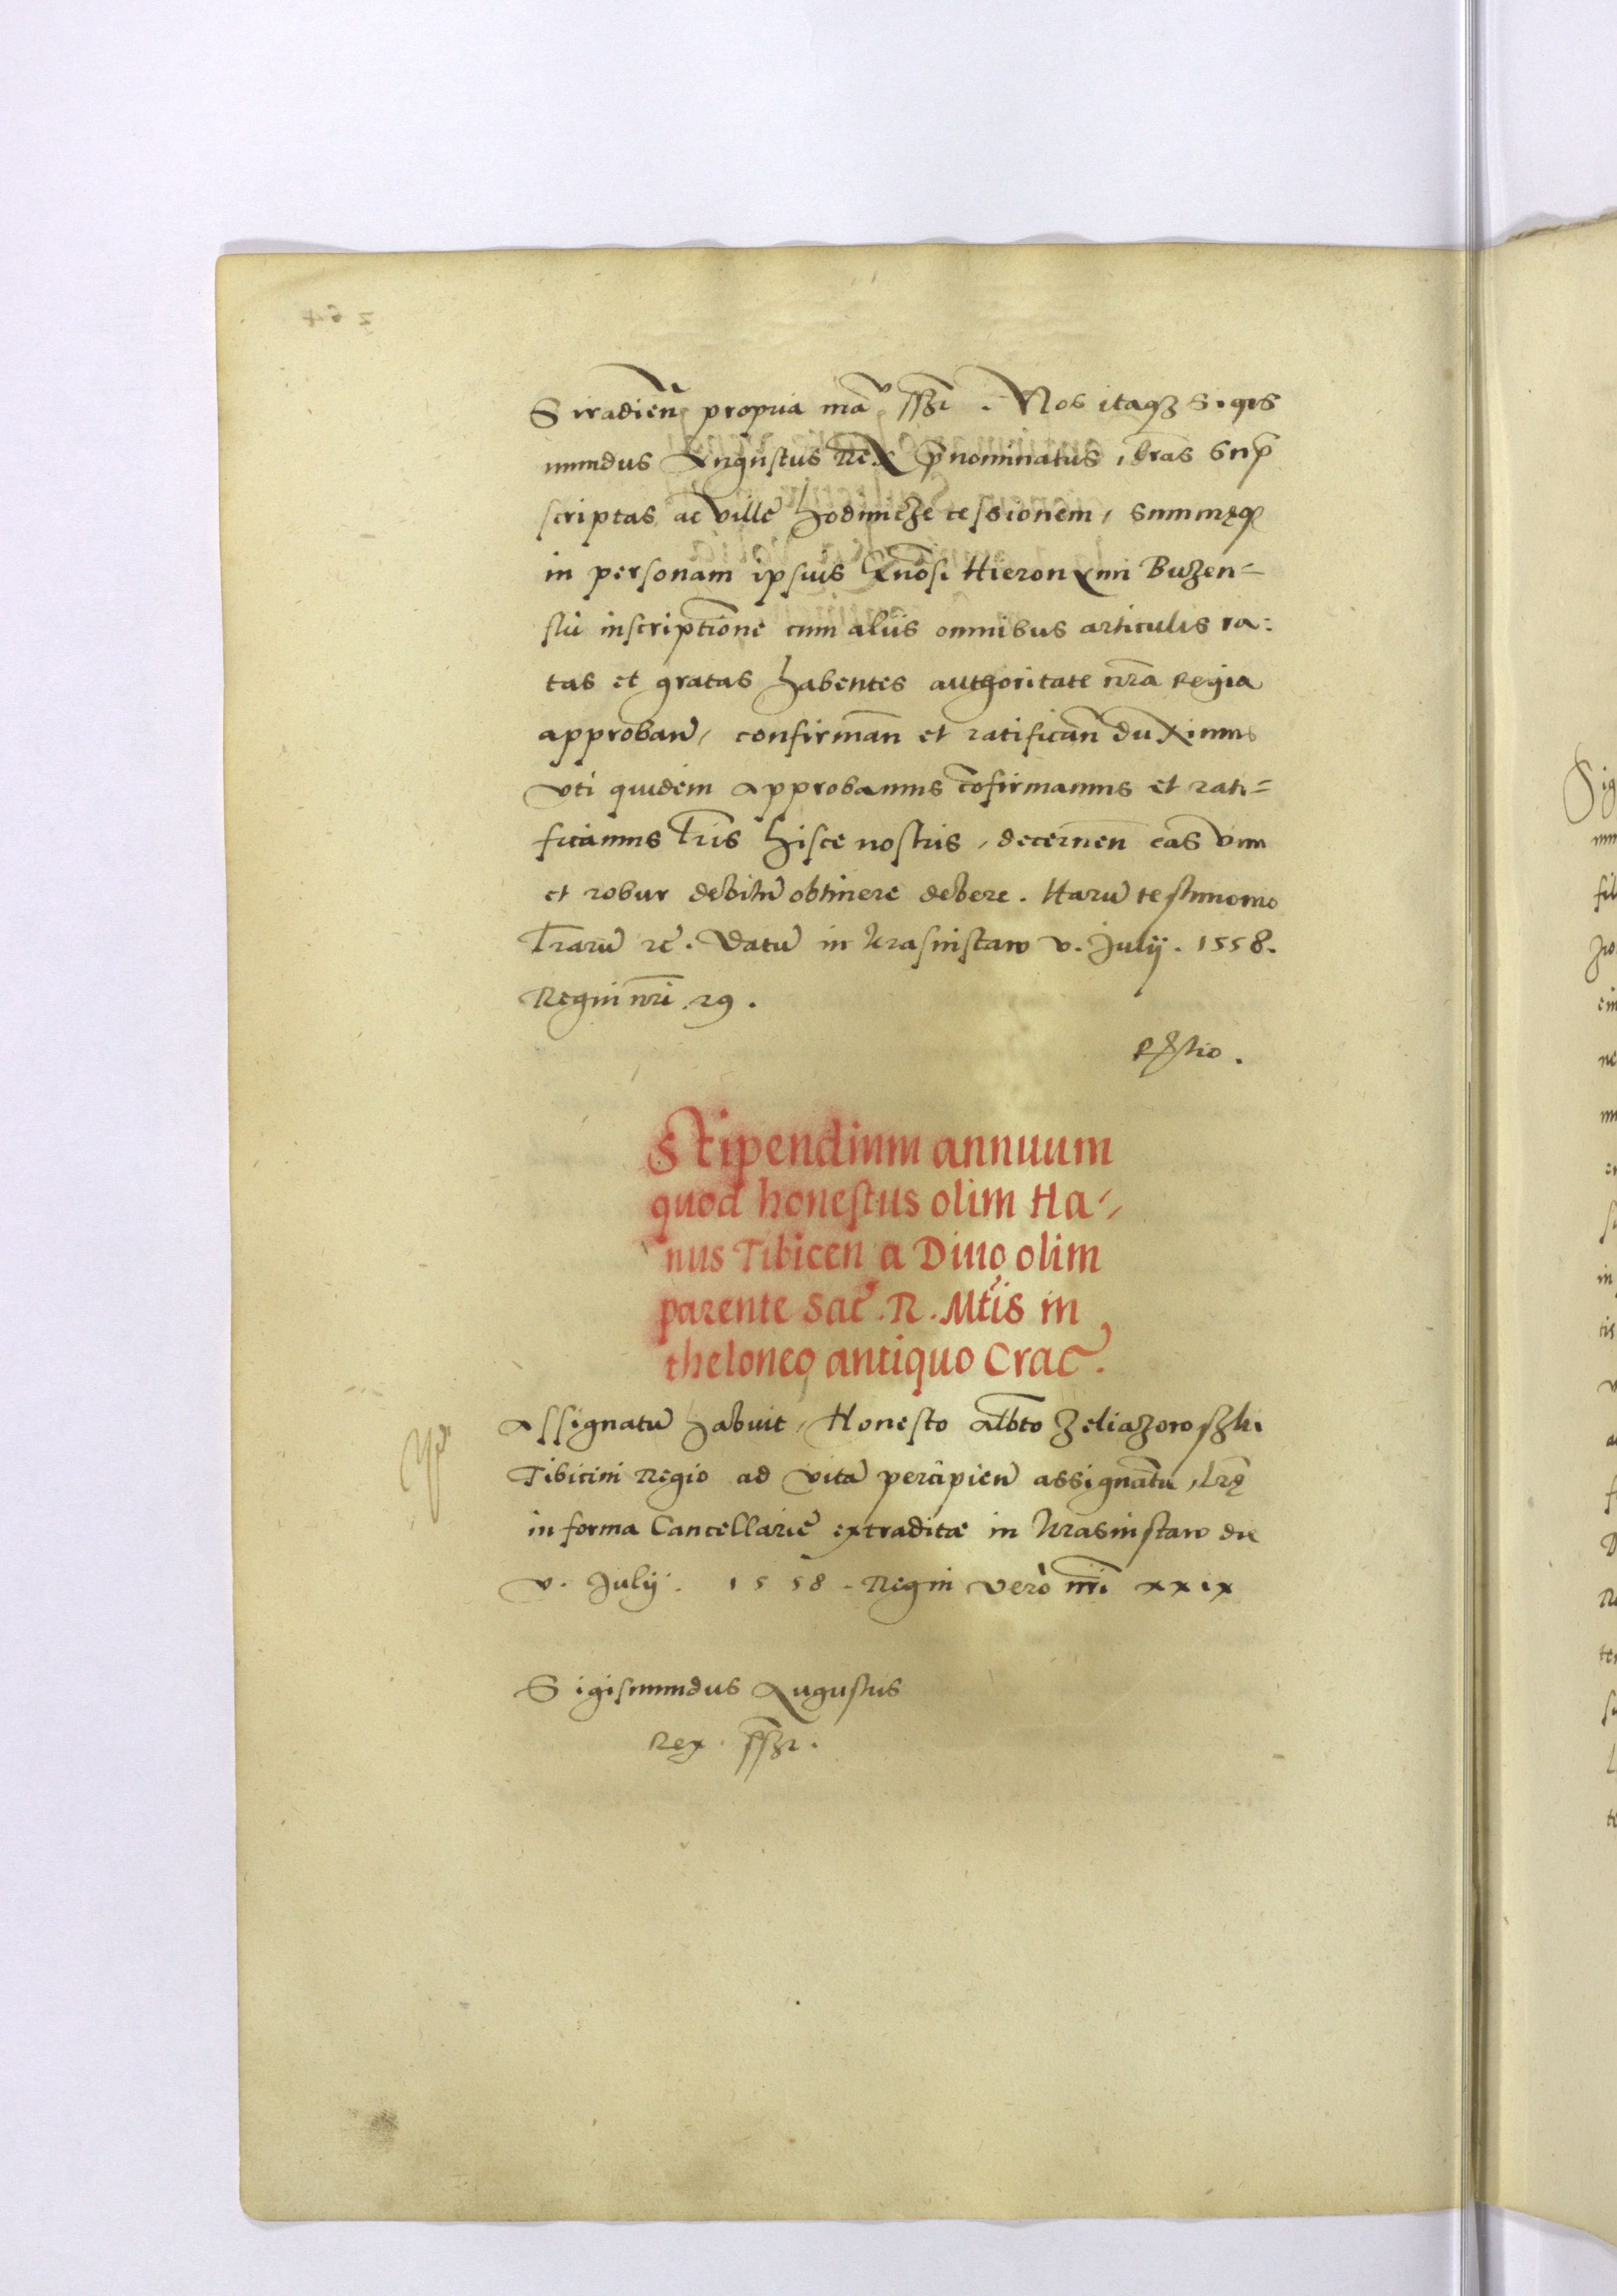 Siradieñ propria mã sszt. Nos itaqz Sigis
mundus Augustus Rex p̃nominatus, lr̃as sup̃
scriptas, ac villę Hodunicze cessionem, summęqz
in personam ipsius Gñosi Hieronymi Buzen=
słii inscriptionẽ cum aliis omnibus articulis ra:
tas et gratas habentes authoritate nr̃a Regia
approbañ, confirmañ et ratificañ duximus
vti quidem approbamus cõfirmamus et rati=
ficamus lr̃is hisce nostris, decerneñ eas vim
et robur debitũ obtinere debere. Harũ testimonio
lr̃arũ rẽ. Datũ in Krasnistaw v. Julij. 1558.
Regni nr̃i 29.
Rltio.
Stipendium annuum
quod honestus olim Ha=
nus Tibicen a Diuo olim
parente Sac̃. R. Mtis in
theloneo antiquo Crac̃.
Assignatũ habuit, Honesto Albt̃o Zeliazoroszki
Tibicini Regio ad vitã percipieñ assignatũ, lr̃ę
in forma Cancellarię extraditæ in Krasnistaw die
v. Julij. 1558. Regni verò nr̃i xxix
Sigismundus Augustus
Rex sszt.